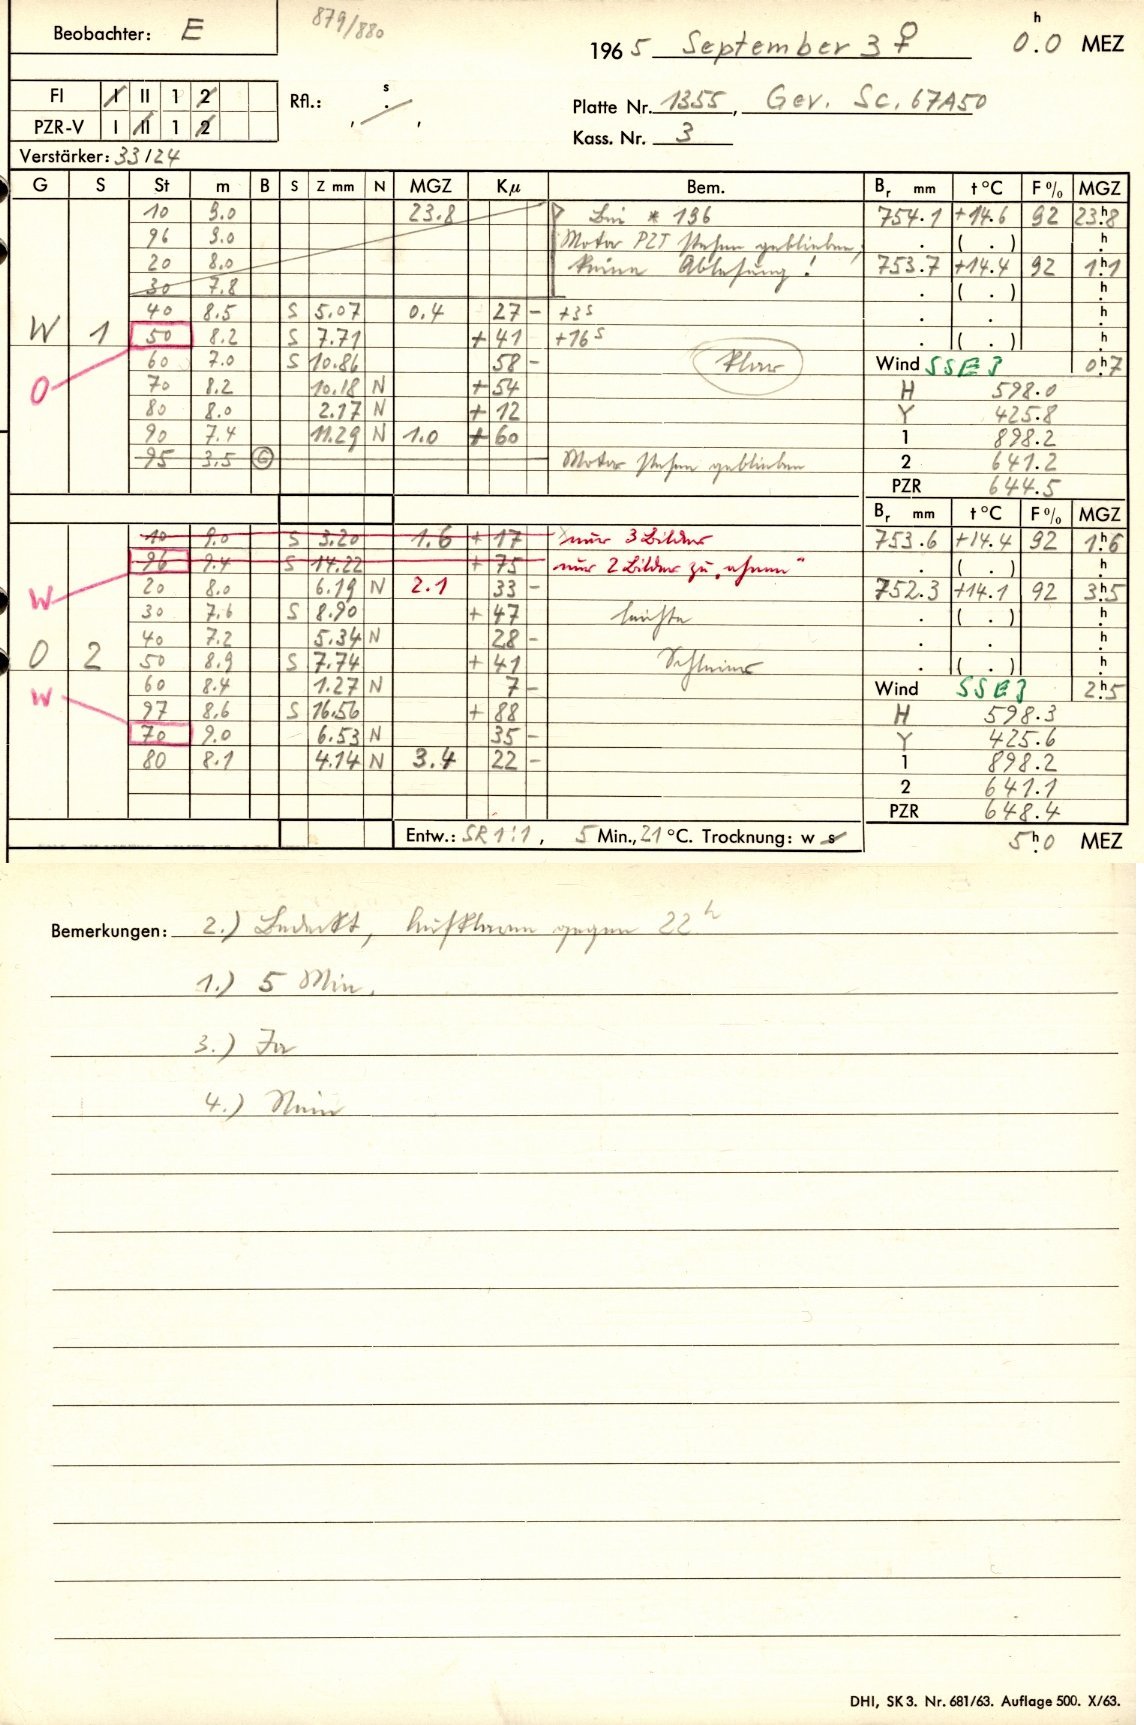 Beobachter: E
879/880
1965 September 3 ♀ 0.0 h MEZ
Fl I II 1 2
Rfl.: , . s ,
PZR-V I II 1 2
Platte Nr. 1355, Gev. Sc. 67A50
Kass. Nr. 3
Verstärker: 33/24
G S St m B S Z mm N MGZ Kµ Bem. Br mm t°C F% MGZ
10 9.0 23.8 Bei * 196 754.1 +14.6 92 23h8
96 9.0 Motor PZT stehen geblieben, . ( . ) h
20 8.0 keine Ablesung! 753.7 +14.4 92 1h1
30 7.8 . ( . ) h
40 8.5 S 5.07 0.4 27 - +3s . . h
W 1 50 8.2 S 7.71 + 41 +16s . ( . ) h
60 7.0 S 10.86 58 - klar Wind SSE 3 0h7
O 70 8.2 10.18 N + 54 H 598.0
80 8.0 2.17 N + 12 Y 425.8
90 7.4 11.29 N 1.0 + 60 1 898.2
95 3.5 © Motor stehen geblieben 2 641.2
PZR 644.5
Br mm t°C F% MGZ
10 9.0 S 3.20 1.6 + 17 nur 3 Bilder 753.6 +14.4 92 1h6
96 9.4 S 14.22 + 75 nur 2 Bilder zu „ . ( . ) h
W 20 8.0 6.19 N 2.1 33 - 752.3 +14.1 92 3h5
30 7.6 S 8.90 + 47 leichte . ( . ) h
40 7.2 5.34 N 28 - . . h
O 2 50 8.9 S 7.74 + 41 Schleier . ( . ) h
60 8.4 1.27 N 7 - Wind SSE 3 2h5
W 97 8.6 S 16.56 + 88 H 598.3
70 9.0 6.53 N 35 - Y 425.6
80 8.1 4.14 N 3.4 22 - 1 898.2
2 641.1
PZR 648.4
Entw.: SR 1:1, 5 Min., 21 °C. Trocknung: w s 5h0 MEZ
Bemerkungen: 2.) Bedeckt, Aufklaren gegen 22h
1.) 5 Min.
3.) Ja
4.) Nein
DHI, SK 3. Nr. 681/63. Auflage 500. X/63.